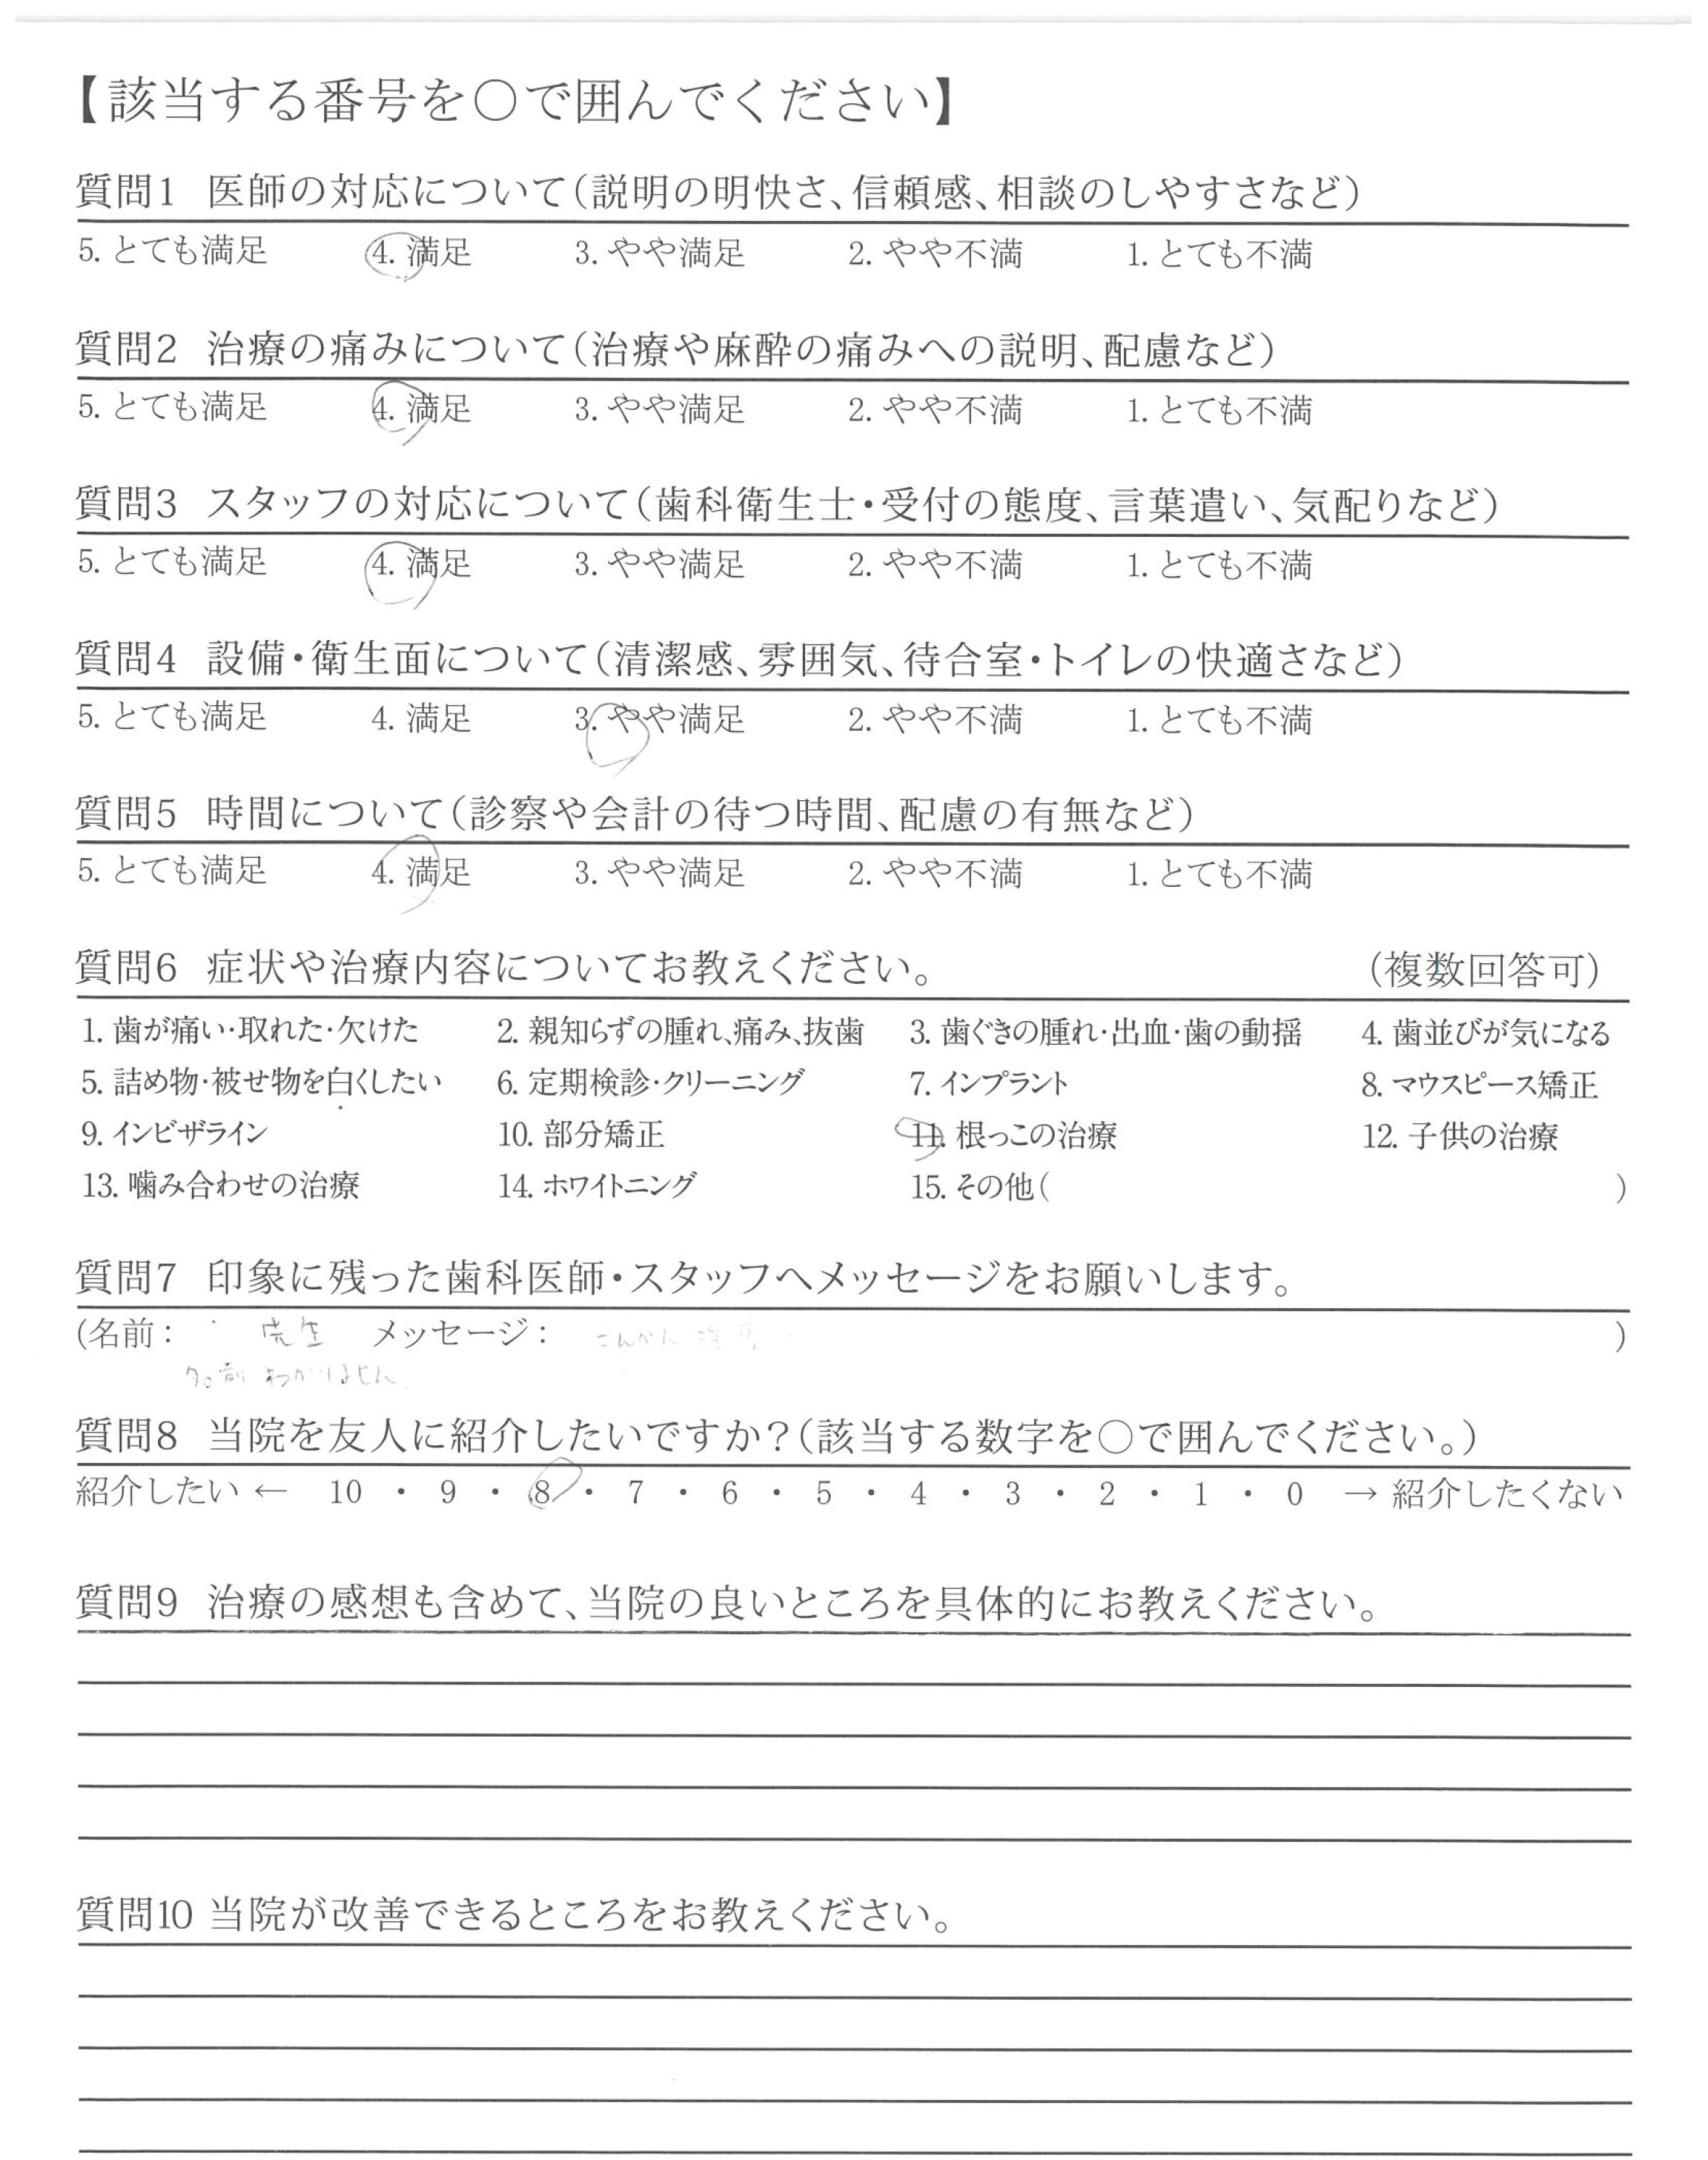 【該当する番号を〇で囲んでください】
質問1 医師の対応について(説明の明快さ、信頼感、相談のしやすさなど)
5. とても満足 4. 満足 3. やや満足 2. やや不満 1. とても不満
質問2 治療の痛みについて(治療や麻酔の痛みへの説明、配慮など)
5. とても満足 4. 満足 3. やや満足 2. やや不満 1. とても不満
質問3 スタッフの対応について(歯科衛生士・受付の態度、言葉遣い、気配りなど)
5. とても満足 4. 満足 3. やや満足 2. やや不満 1. とても不満
質問4 設備・衛生面について(清潔感、雰囲気、待合室・トイレの快適さなど)
5. とても満足 4. 満足 3. やや満足 2. やや不満 1. とても不満
質問5 時間について(診察や会計の待つ時間、配慮の有無など)
5. とても満足 4. 満足 3. やや満足 2. やや不満 1. とても不満
質問6 症状や治療内容についてお教えください。 (複数回答可)
1. 歯が痛い・取れた・欠けた 2. 親知らずの腫れ、痛み、抜歯 3. 歯ぐきの腫れ・出血・歯の動揺 4. 歯並びが気になる
5. 詰め物・被せ物を白くしたい 6. 定期検診・クリーニング 7. インプラント 8. マウスピース矯正
9. インビザライン 10. 部分矯正 11. 根っこの治療 12. 子供の治療
13. 噛み合わせの治療 14. ホワイトニング 15. その他( )
質問7 印象に残った歯科医師・スタッフへメッセージをお願いします。
(名前: 先生 メッセージ: こんかん治療 )
名前わかりません
質問8 当院を友人に紹介したいですか?(該当する数字を〇で囲んでください。)
紹介したい ← 10 ・ 9 ・ 8 ・ 7 ・ 6 ・ 5 ・ 4 ・ 3 ・ 2 ・ 1 ・ 0 → 紹介したくない
質問9 治療の感想も含めて、当院の良いところを具体的にお教えください。
質問10 当院が改善できるところをお教えください。